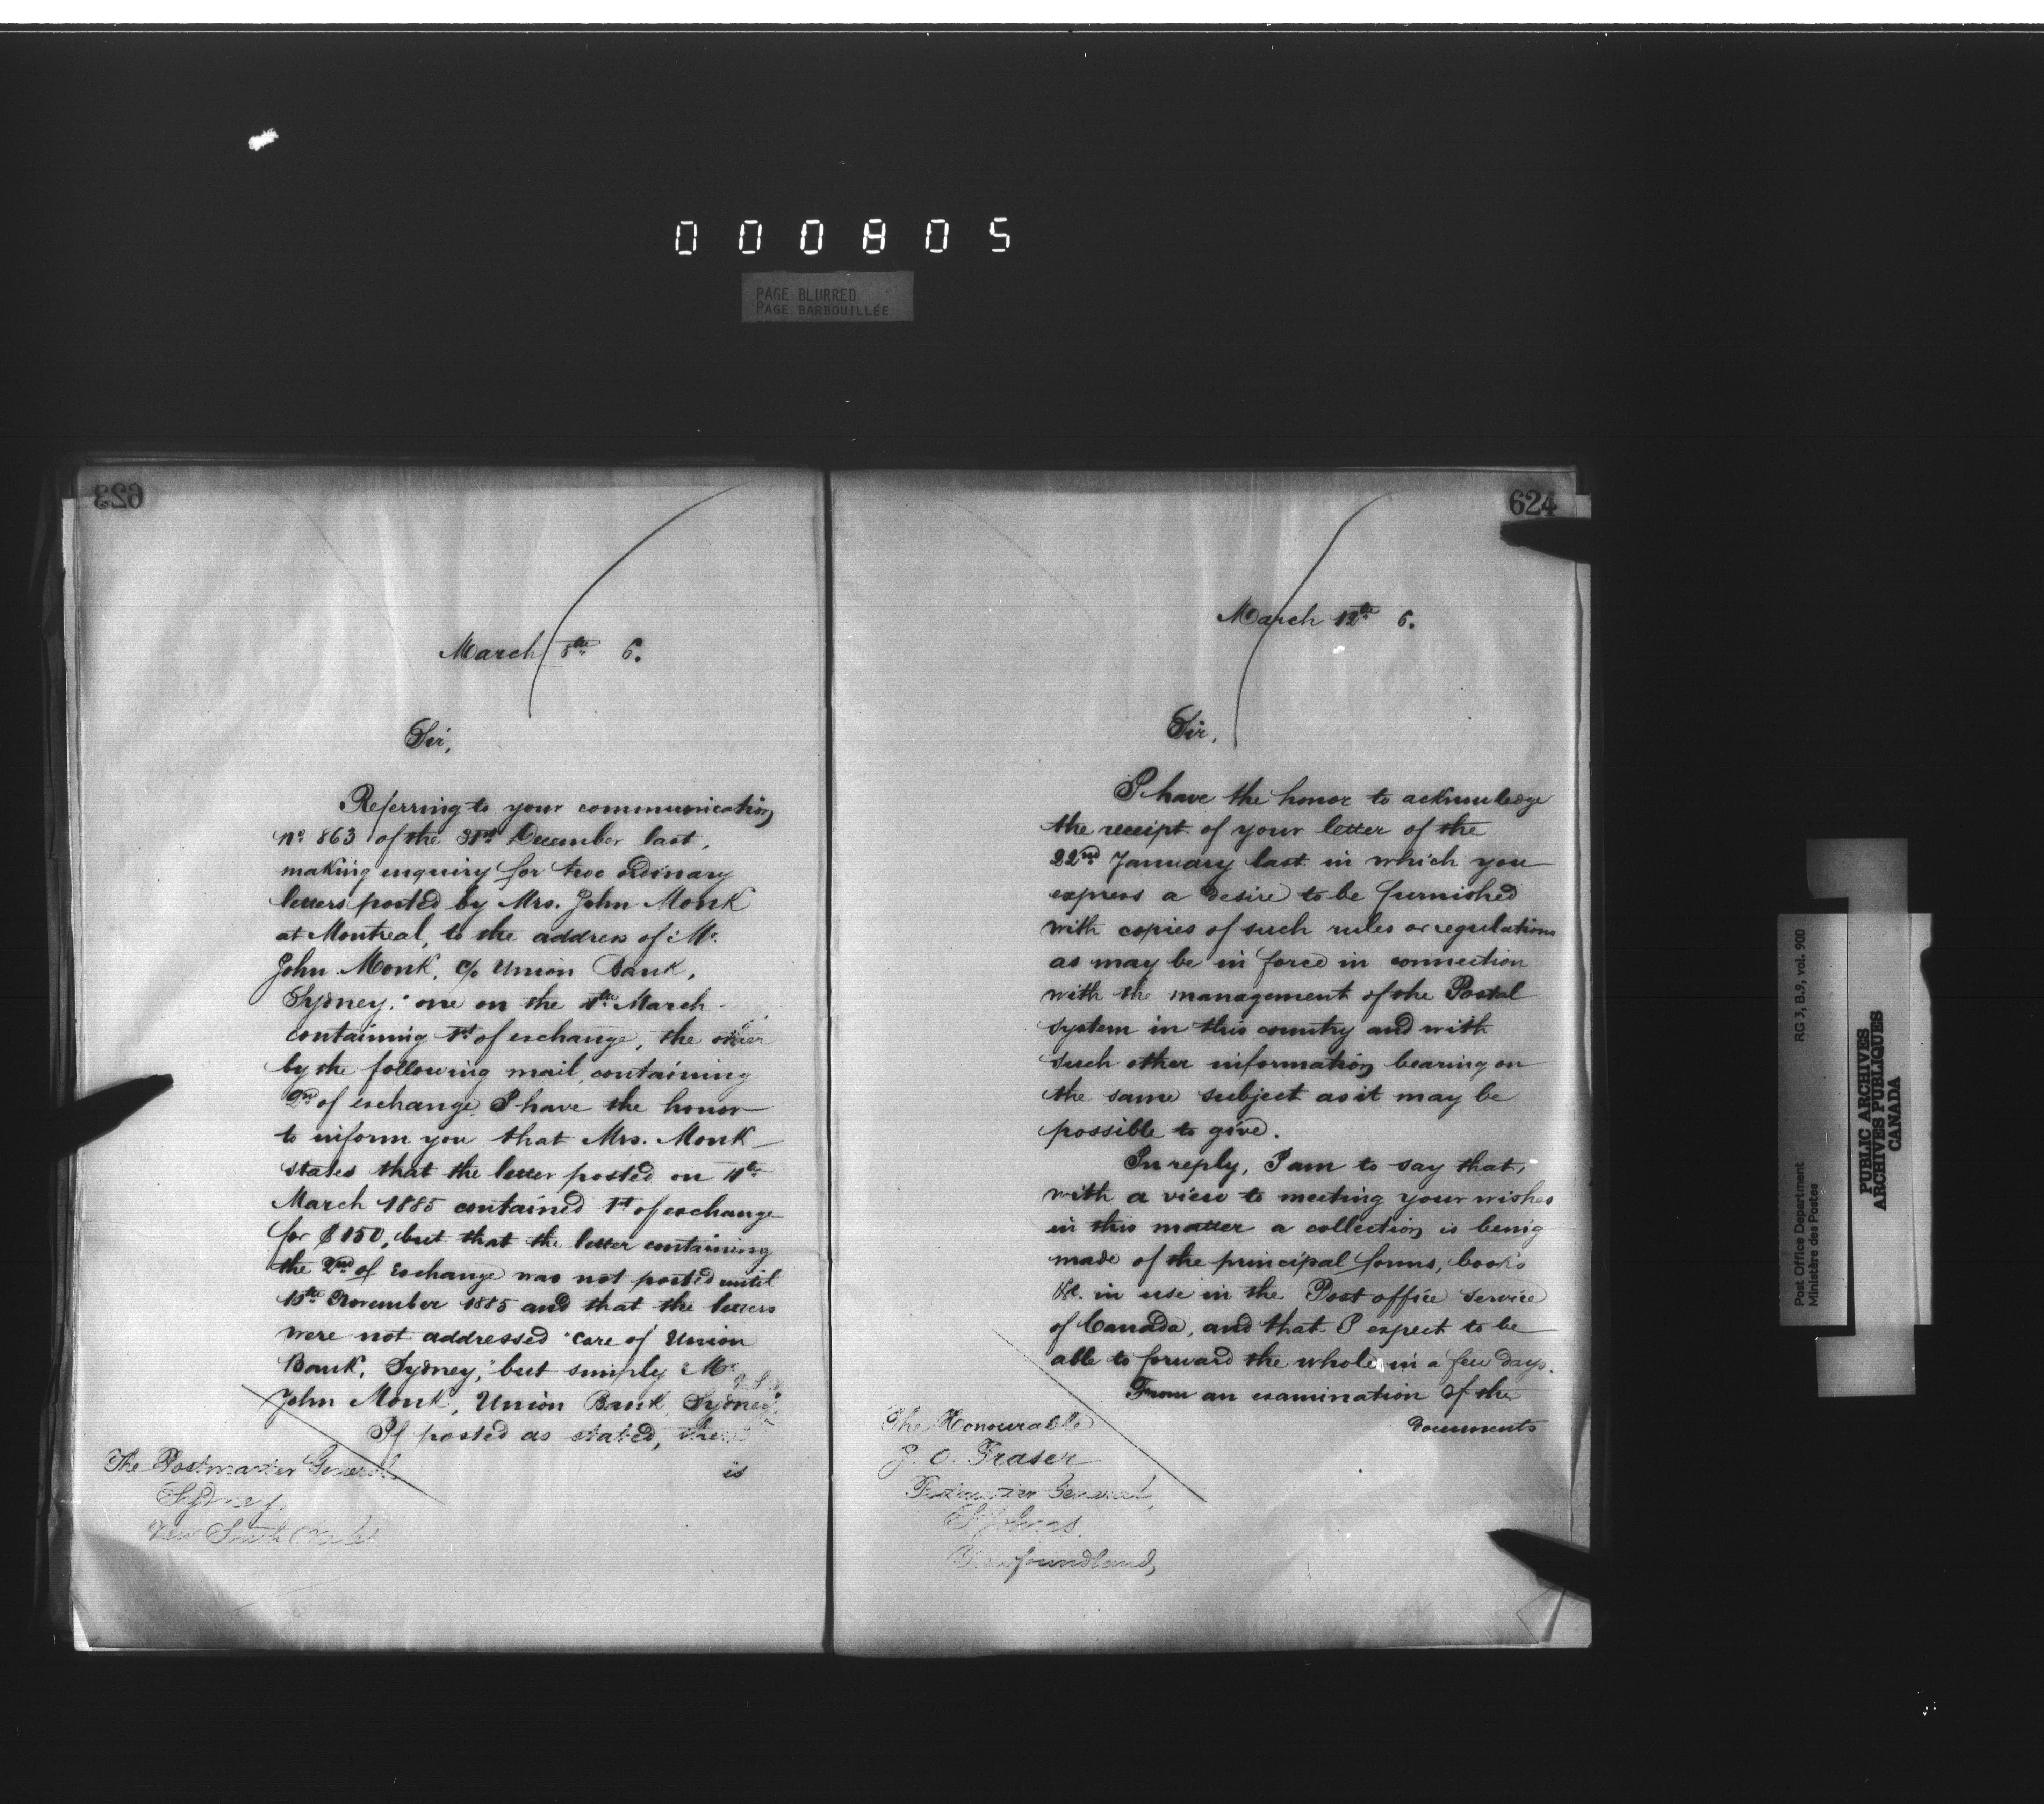 000805
PAGE BLURRED
PAGE BARBOUILLÉE
623
March 8th 6.
Sir,
Referring to your communication
No. 863 of the 31st December last,
making enquiry for two ordinary
letters posted by Mrs. John Monk
at Montreal, to the address of "Mr.
John Monk, c/o Union Bank,
Sydney," one on the March
containing 1st of exchange, the other
by the following mail, containing
2nd of exchange, I have the honor
to inform you that Mrs. Monk
states that the letter posted on
March 1885 contained 1st of exchange
for $150, but that the letter containing
the 2nd of Exchange was not posted until
November 1885 and that the letters
were not addressed "care of Union
Bank, Sydney," but simply "Mr.
John Monk, Union Bank, Sydney,
If posted as stated, the
is
The Postmaster General
Sydney,
New South Wales
624
March 12th 6.
Sir,
I have the honor to acknowledge
the receipt of your letter of the
22nd January last in which you
express a desire to be furnished
with copies of such rules or regulations
as may be in force in connection
with the management of the Postal
system in this country and with
such other information bearing on
the same subject as it may be
possible to give.
In reply, I am to say that,
with a view to meeting your wishes
in this matter a collection is being
made of the principal forms, books
&c. in use in the Post office service
of Canada, and that I expect to be
able to forward the whole in a few days.
From an examination of the
documents
The Honourable
J. O. Fraser
Postmaster General,
St Johns.
Newfoundland,
Post Office Department
Ministère des Postes
RG 3, B.9, vol. 900
PUBLIC ARCHIVES
ARCHIVES PUBLIQUES
CANADA